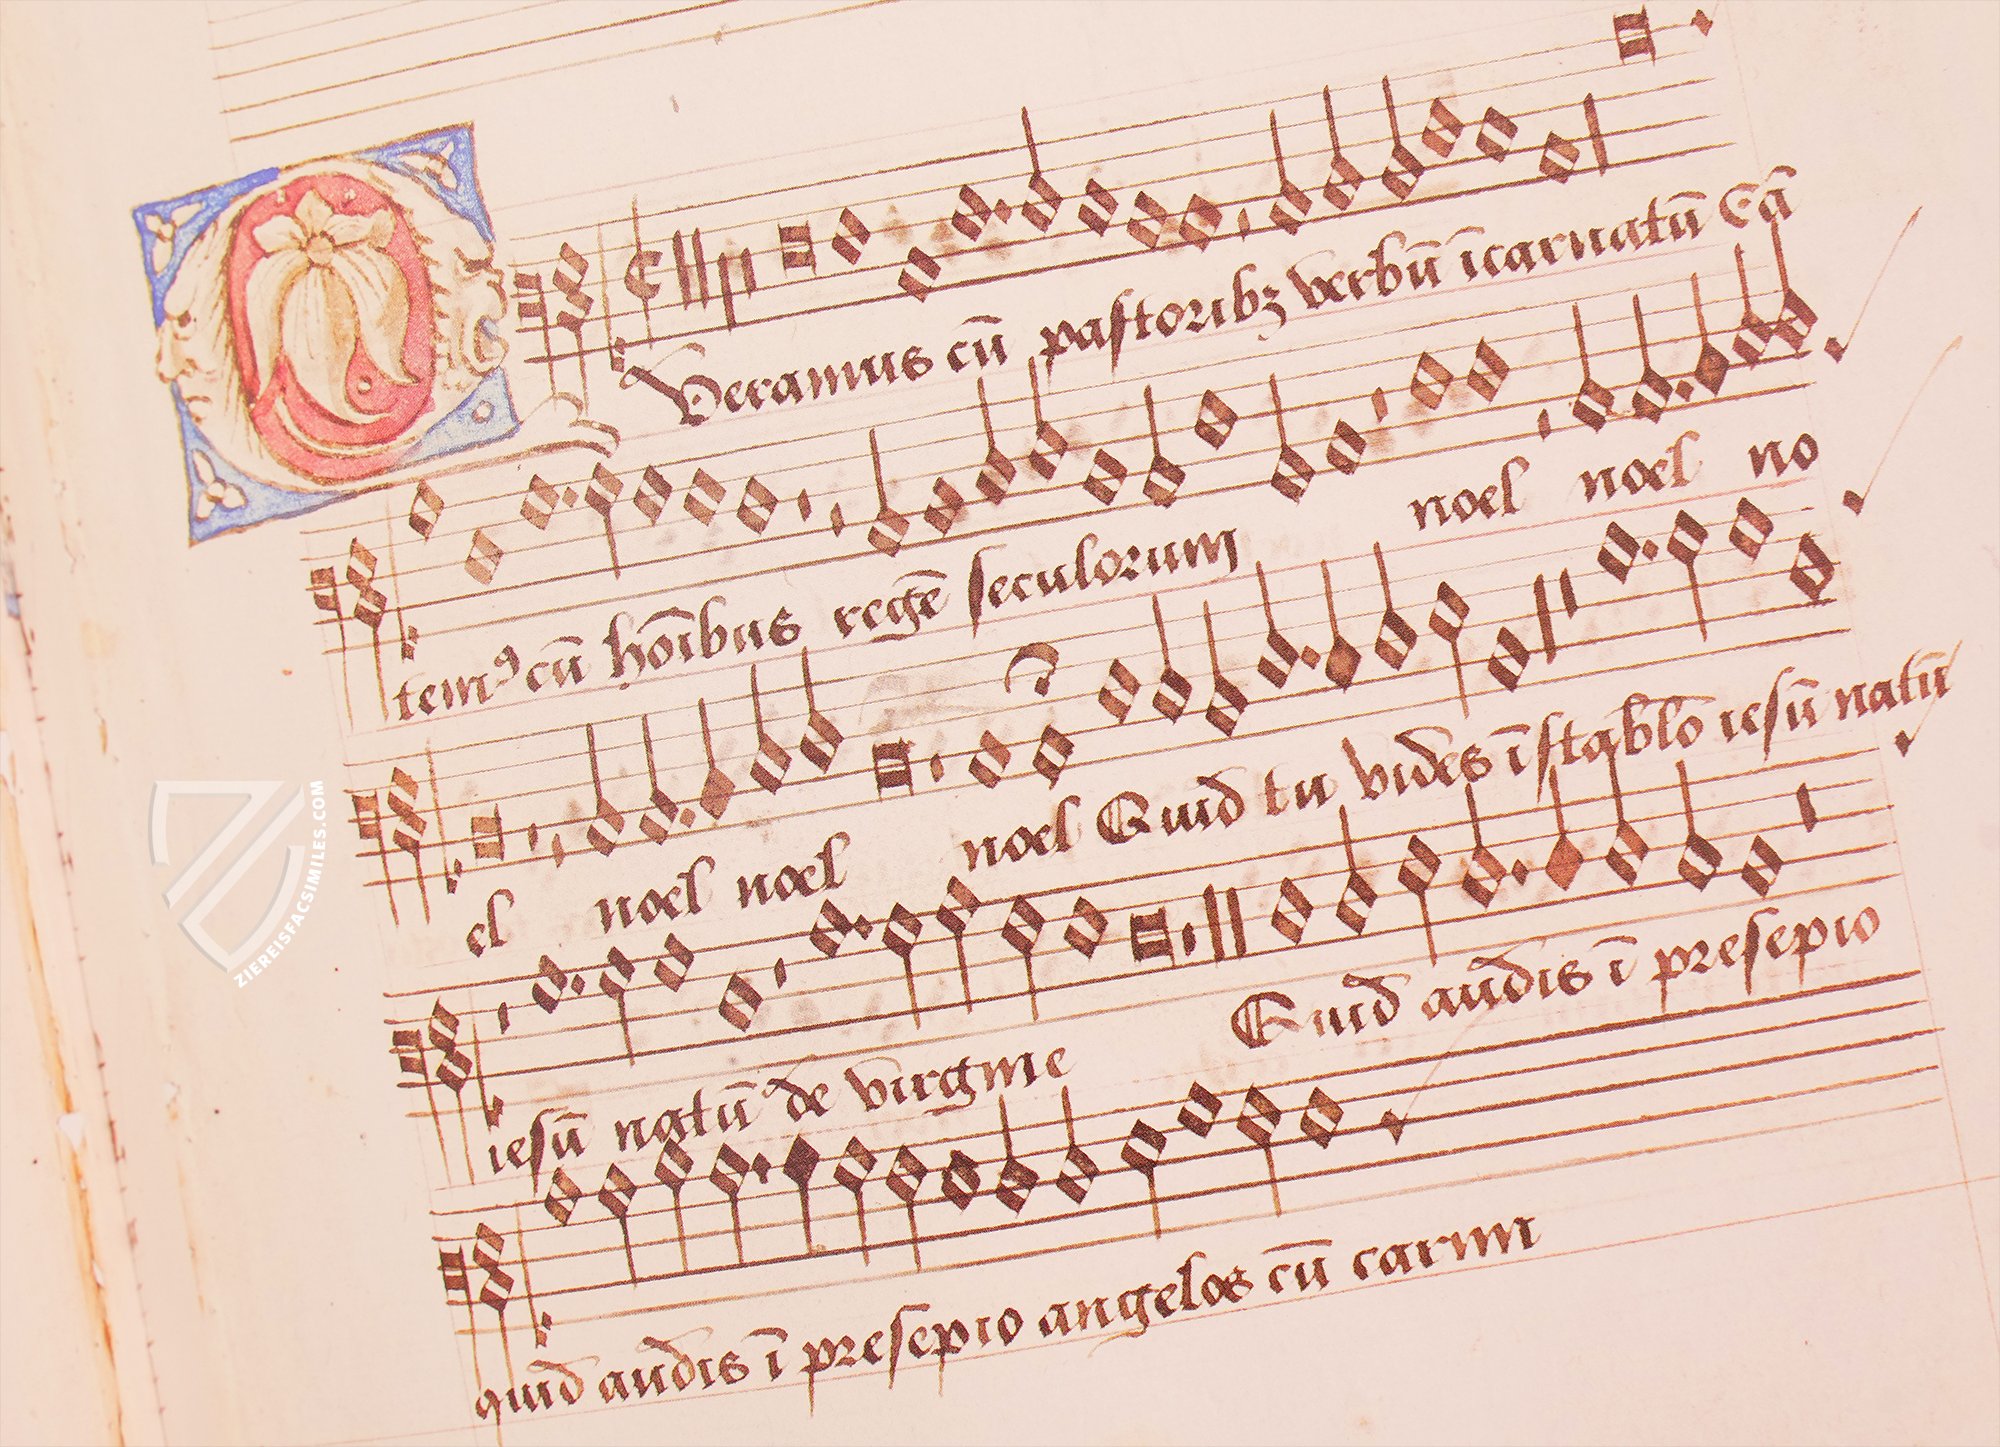 Queramus cū pastoribꝫ verbū īcarnatū Cā
temꝰ cū hoībus regē seculorum noel noel no
el noel noel noel Quid tu vides ī stablo iesū natū
iesū natū de virgine Quid audis ī presepio
quid audis ī presepio angelos cū carmi
ZIEREISFACSIMILES.COM